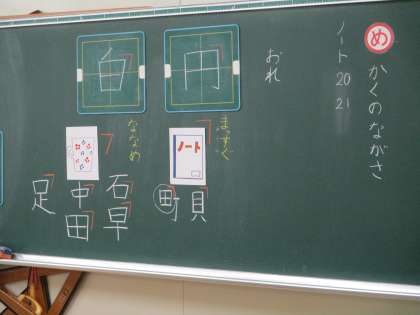 め かくのながさ
ノート 20 21
おれ
円
白
まっすぐ
ノート
ななめ
貝
町
石
早
中
田
足